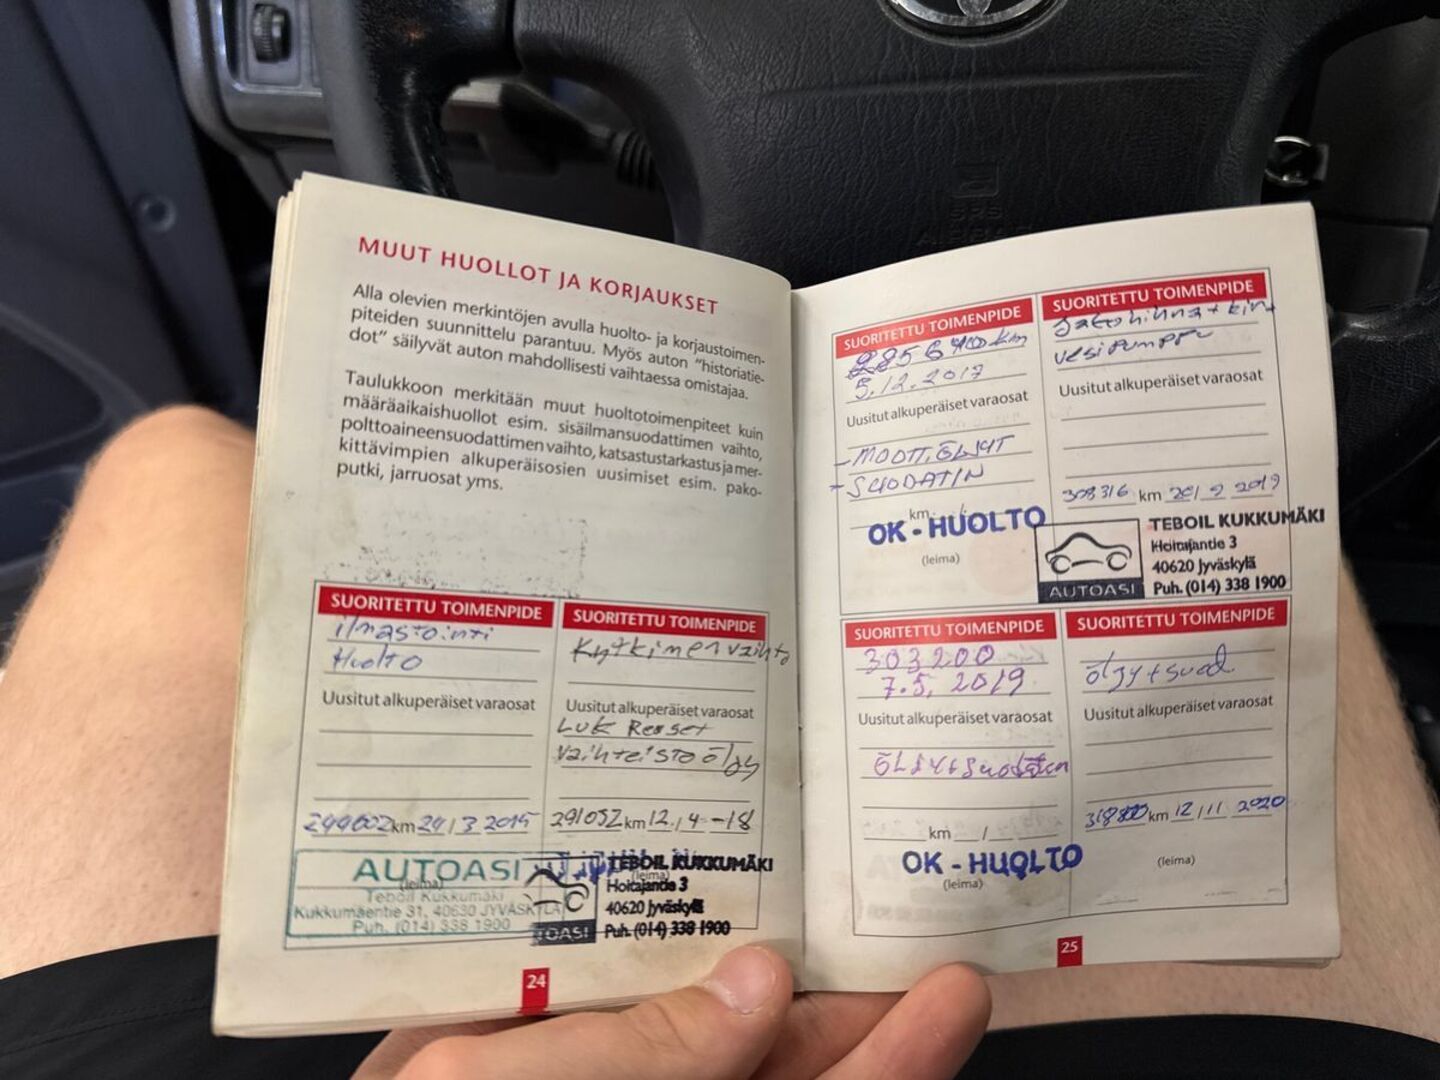 MUUT HUOLLOT JA KORJAUKSET
Alla olevien merkintöjen avulla huolto- ja korjaustoimen-
piteiden suunnittelu parantuu. Myös auton "historiatie-
dot" säilyvät auton mahdollisesti vaihtaessa omistajaa.
Taulukkoon merkitään muut huoltotoimenpiteet kuin
määräaikaishuollot esim. sisäilmansuodattimen vaihto,
polttoaineensuodattimen vaihto, katsastustarkastus ja mer-
kittävimpien alkuperäisosien uusimiset esim. pako-
putki, jarruosat yms.
SUORITETTU TOIMENPIDE
ilmastointi
Huolto
Uusitut alkuperäiset varaosat
244602 km 24/3 2015
(leima)
AUTOASI
Teboil Kukkumäki
Kukkumäentie 31, 40630 JYVÄSKYLÄ
Puh. (014) 338 1900
SUORITETTU TOIMENPIDE
Kytkimen vaihto
Uusitut alkuperäiset varaosat
LUK
vaihteistoöljy
291052 km 12./4 -18
(leima)
TEBOIL KUKKUMÄKI
Hoitajantie 3
40620 Jyväskylä
Puh. (014) 338 1900
TOASI
24
SUORITETTU TOIMENPIDE
285 6 km
5.12.2017
Uusitut alkuperäiset varaosat
- MOOTT.ÖLJYT
- SUODATIN
km
OK - HUOLTO
(leima)
SUORITETTU TOIMENPIDE
Jakohihna +
vesipumppu
Uusitut alkuperäiset varaosat
308316 km 20/9 2019
AUTOASI
TEBOIL KUKKUMÄKI
Hoitajantie 3
40620 Jyväskylä
Puh. (014) 338 1900
SUORITETTU TOIMENPIDE
303200
7.5. 2019
Uusitut alkuperäiset varaosat
ÖLJYT+Suodatin
km /
OK - HUOLTO
(leima)
SUORITETTU TOIMENPIDE
öljy + suod
Uusitut alkuperäiset varaosat
km 12/11 2020
(leima)
25
SRS
AIRBAG